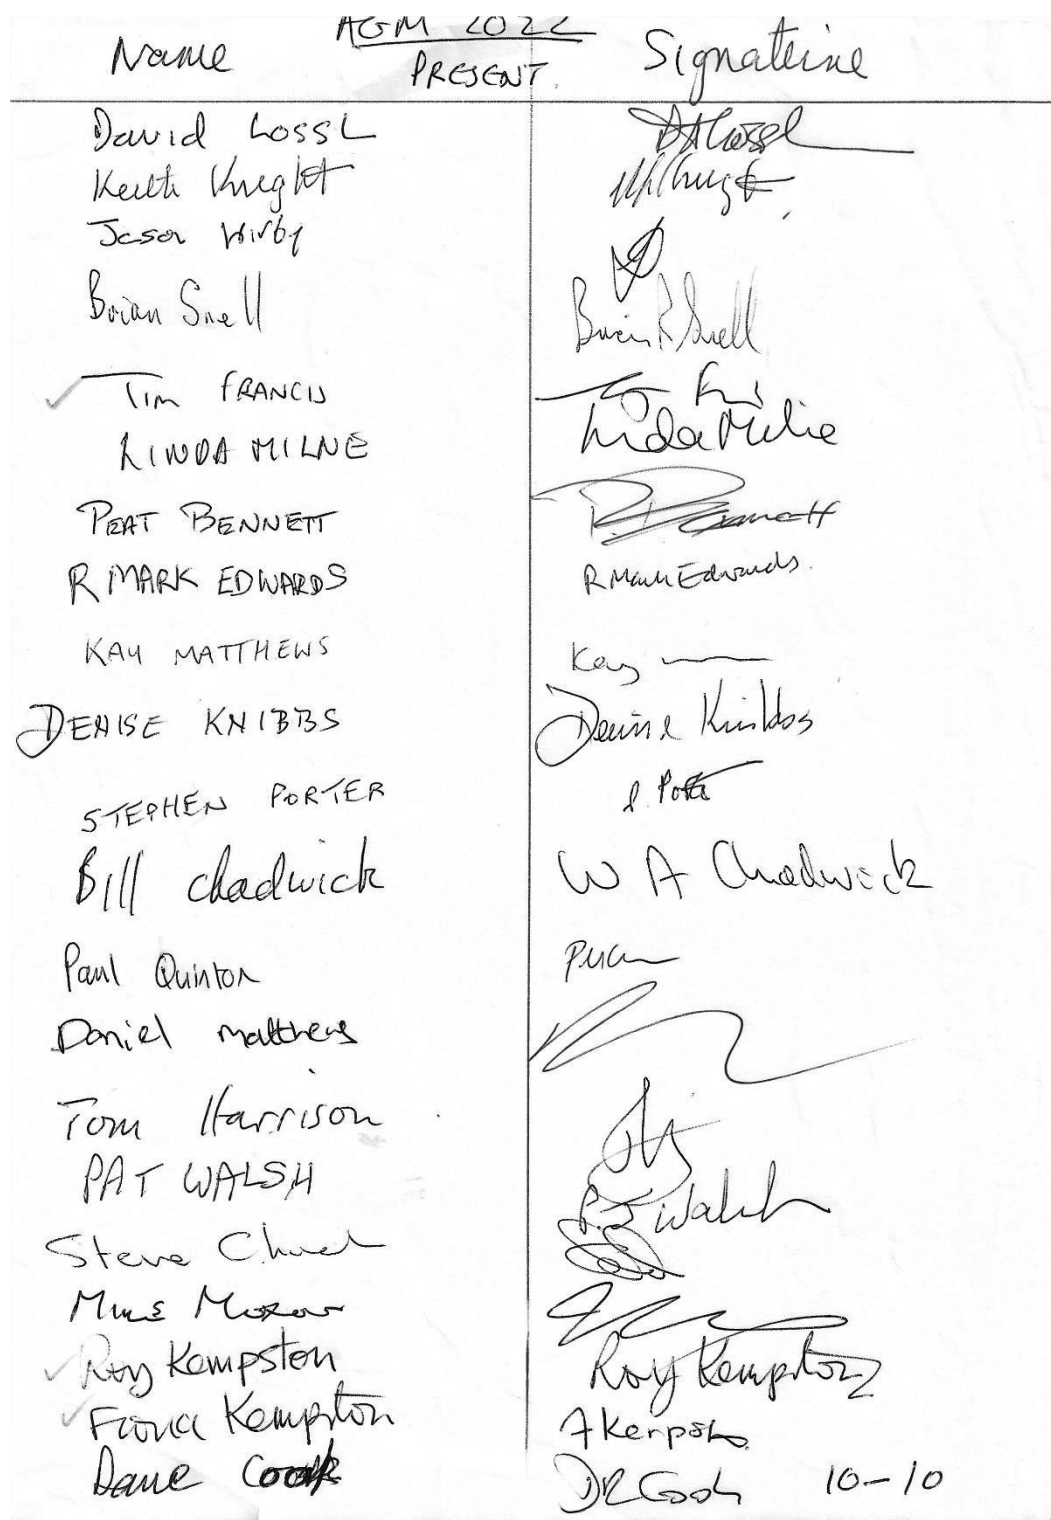 AGM 2022
Name PRESENT. Signature
David Lossl DALossl
Keith Knight
Jason Kirby
Brian Snell Brian R Snell
Tim FRANCIS
LINDA MILNE Linda Milne
PEAT BENNETT P. Bennett
R MARK EDWARDS R Mark Edwards.
KAY MATTHEWS Kay
DENISE KNIBBS Denise Knibbs
STEPHEN PORTER S. Porter
Bill Chadwick W A Chadwick
Paul Quinton
Daniel Matthews
Tom Harrison
PAT WALSH P. J Walsh
Steve
Roy Kempston Roy Kempston
Fiona Kempston F Kempston
Dave Cook DR Cook 10-10